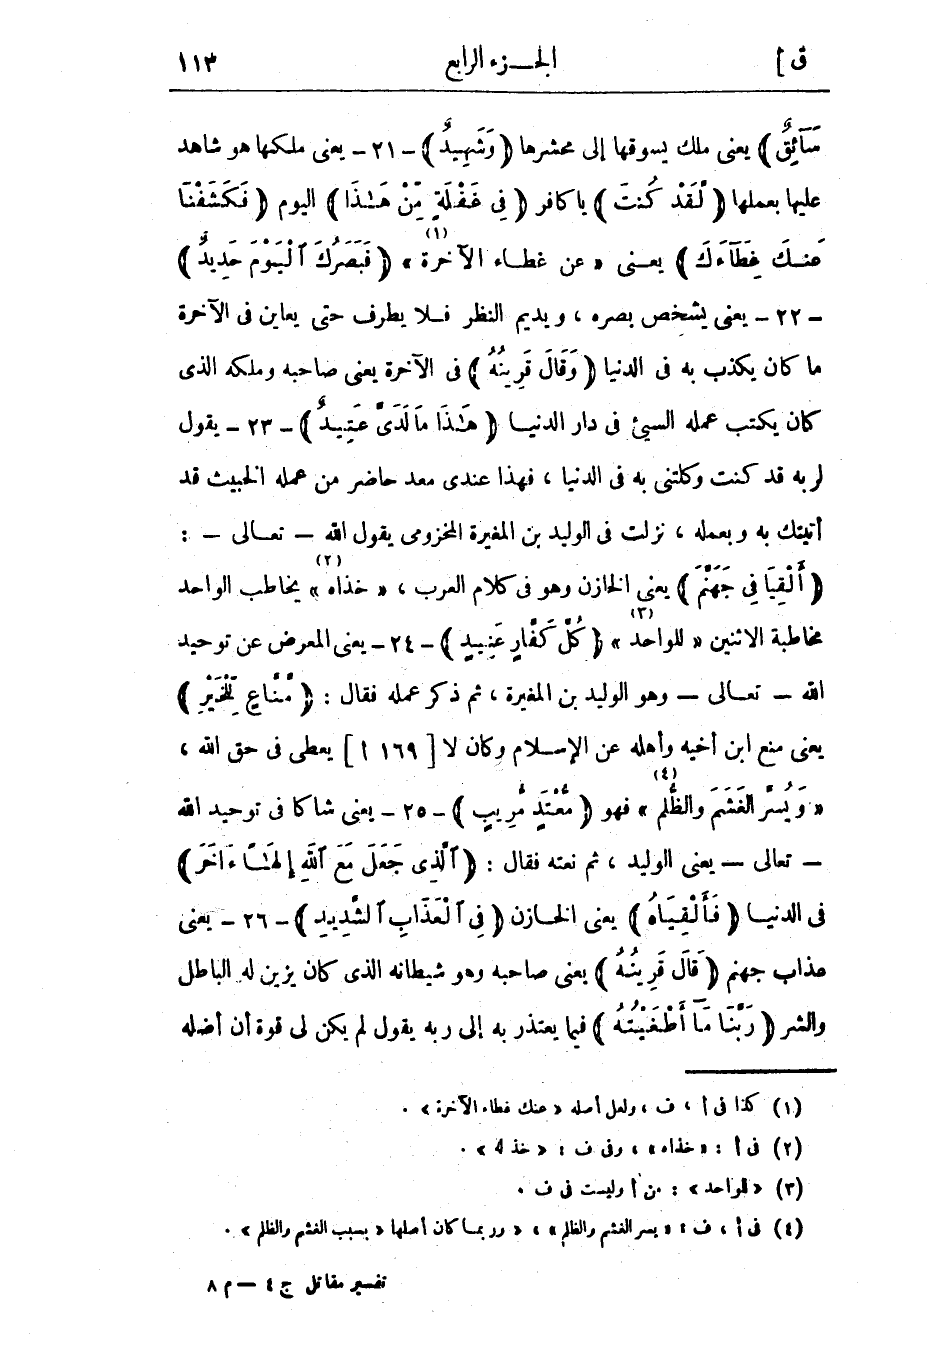 ق ] الجـــزء الرابع ١١٣
سَآئِقٌ ) يعنى ملك يسوقها إلى محشرها ( وَشَهِيدٌ ) - ٢١ - يعنى ملكها هو شاهد
عليها بعملها ( لَّقَدْ كُنتَ ) يا كافر ( فِى غَفْلَةٍ مِّنْ هَـٰذَا ) اليوم ( فَكَشَفْنَا
عَنكَ غِطَآءَكَ ) يعـنى « عن غطـاء الآخرة (١) » ( فَبَصَرُكَ ٱلْيَوْمَ حَدِيدٌ )
- ٢٢ - يعنى يشخص بصره ، ويديم النظر فـلا يطرف حتى يعاين فى الآخرة
ما كان يكذب به فى الدنيا ( وَقَالَ قَرِينُهُ ) فى الآخرة يعنى صاحبه وملكه الذى
كان يكتب عمله السيئ فى دار الدنيـا ( هَـٰذَا مَا لَدَىَّ عَتِيدٌ ) - ٢٣ - يقول
لربه قد كنت وكلتنى به فى الدنيا ، فهذا عندى معد حاضر من عمله الخبيث قد
أتيتك به وبعمله ، نزلت فى الوليد بن المغيرة المخزومى يقول الله - تعـالى - :
( أَلْقِيَا فِى جَهَنَّمَ ) يعنى الخازن وهو فى كلام العرب ، « خذاه (٢) » يخاطب الواحد
مخاطبة الاثنين « للواحد (٣) » ( كُلَّ كَفَّارٍ عَنِيدٍ ) - ٢٤ - يعنى المعرض عن توحيد
الله - تعـالى - وهو الوليد بن المغيرة ، ثم ذكر عمله فقال : ( مَّنَّاعٍ لِّلْخَيْرِ )
يعنى منع ابن أخيه وأهله عن الإسـلام وكان لا [ ١٦٩ أ ] يعطى فى حق الله ،
« وَيُسَرُّ الغَشَمَ والظُّلم (٤) » فهو ( مُعْتَدٍ مُّرِيبٍ ) - ٢٥ - يعنى شاكا فى توحيد الله
- تعالى - يعنى الوليد ، ثم نعته فقال : ( ٱلَّذِى جَعَلَ مَعَ ٱللَّهِ إِلَـٰهًا ءَاخَرَ )
فى الدنيـا ( فَأَلْقِيَاهُ ) يعنى الخـازن ( فِى ٱلْعَذَابِ ٱلشَّدِيدِ ) - ٢٦ - يعنى
عذاب جهنم ( قَالَ قَرِينُهُ ) يعنى صاحبه وهو شيطانه الذى كان يزين له الباطل
والشر ( رَبَّنَا مَآ أَطْغَيْتُهُ ) فيما يعتذر به إلى ربه يقول لم يكن لى قوة أن أضله
(١) كذا فى أ ، ف ، ولعل أصله « عنك غطاء الآخرة » .
(٢) فى أ : « خذاه » ، وفى ف : « خذ له » .
(٣) « للواحد » : من أ وليست فى ف .
(٤) فى أ ، ف : « يسر الغشم والظلم » ، « وربمـا كان أصلها « بسبب الغشم والظلم » .
تفسير مقاتل ج ٤ - م ٨